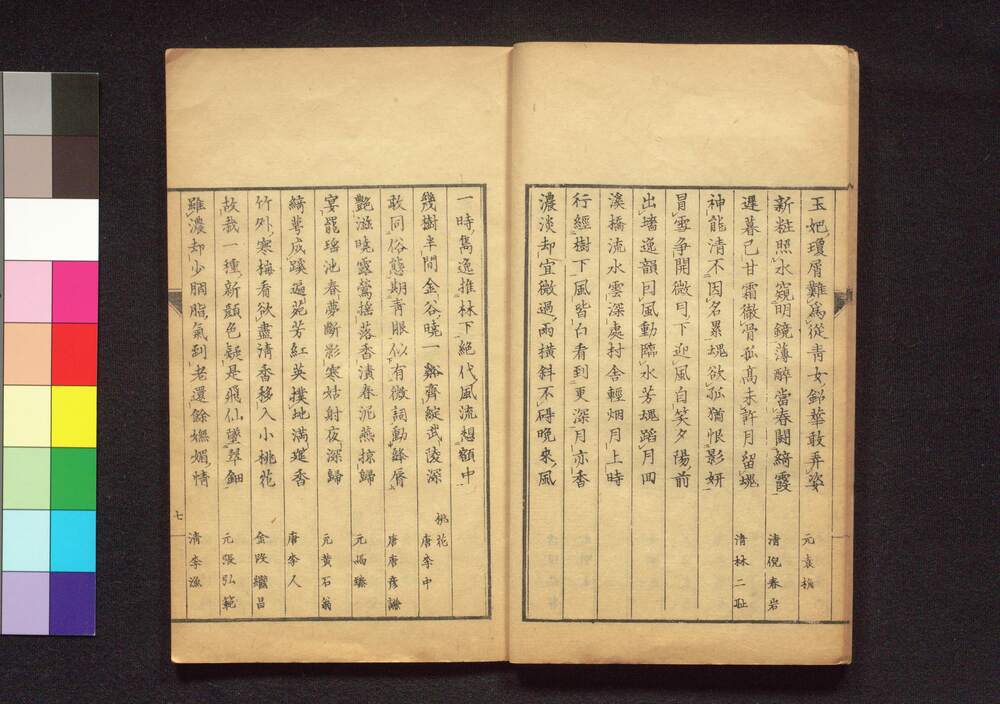 玉妃瓊屑難爲從青女鉛華敢弄姿 元袁桷
新粧照水窺明鏡薄醉當春鬭綺霞 清倪春岩
遲暮已甘霜徹骨孤高未許月留魂 清林二耻
神龍清不因名累塊欲孤猶恨影妍
冒雪争開微月下迎風自笑夕陽前
出墻逸韻囙風動臨水芳塊踏月四
溪橋流水雲深處村舍輕烟月上時
行經樹下風皆白看到更深月亦香
濃淡却宜微過雨橫斜不碍晩來風
一時雋逸推林下絶代風流想額中
桃花
幾樹半開金谷曉一谿齊綻武陵深 唐李中
敢同俗態期青眼似有微詞動絳唇 唐唐彥謙
艶滋曉露鶯搖落香漬春泥燕掠歸 元馮臻
宴罷瑶池春夢斷影寒姑射夜深歸 元黄石翁
綺萼成蹊遍苑芳紅英撲地滿筵香 唐李人
竹外寒梅看欲盡清香移入小桃花 金段繼昌
故栽一種新顏色疑是飛仙墮翠鈿 元張弘範
雖濃却少胭脂氣到老還餘嫵媚情 清李漁
七